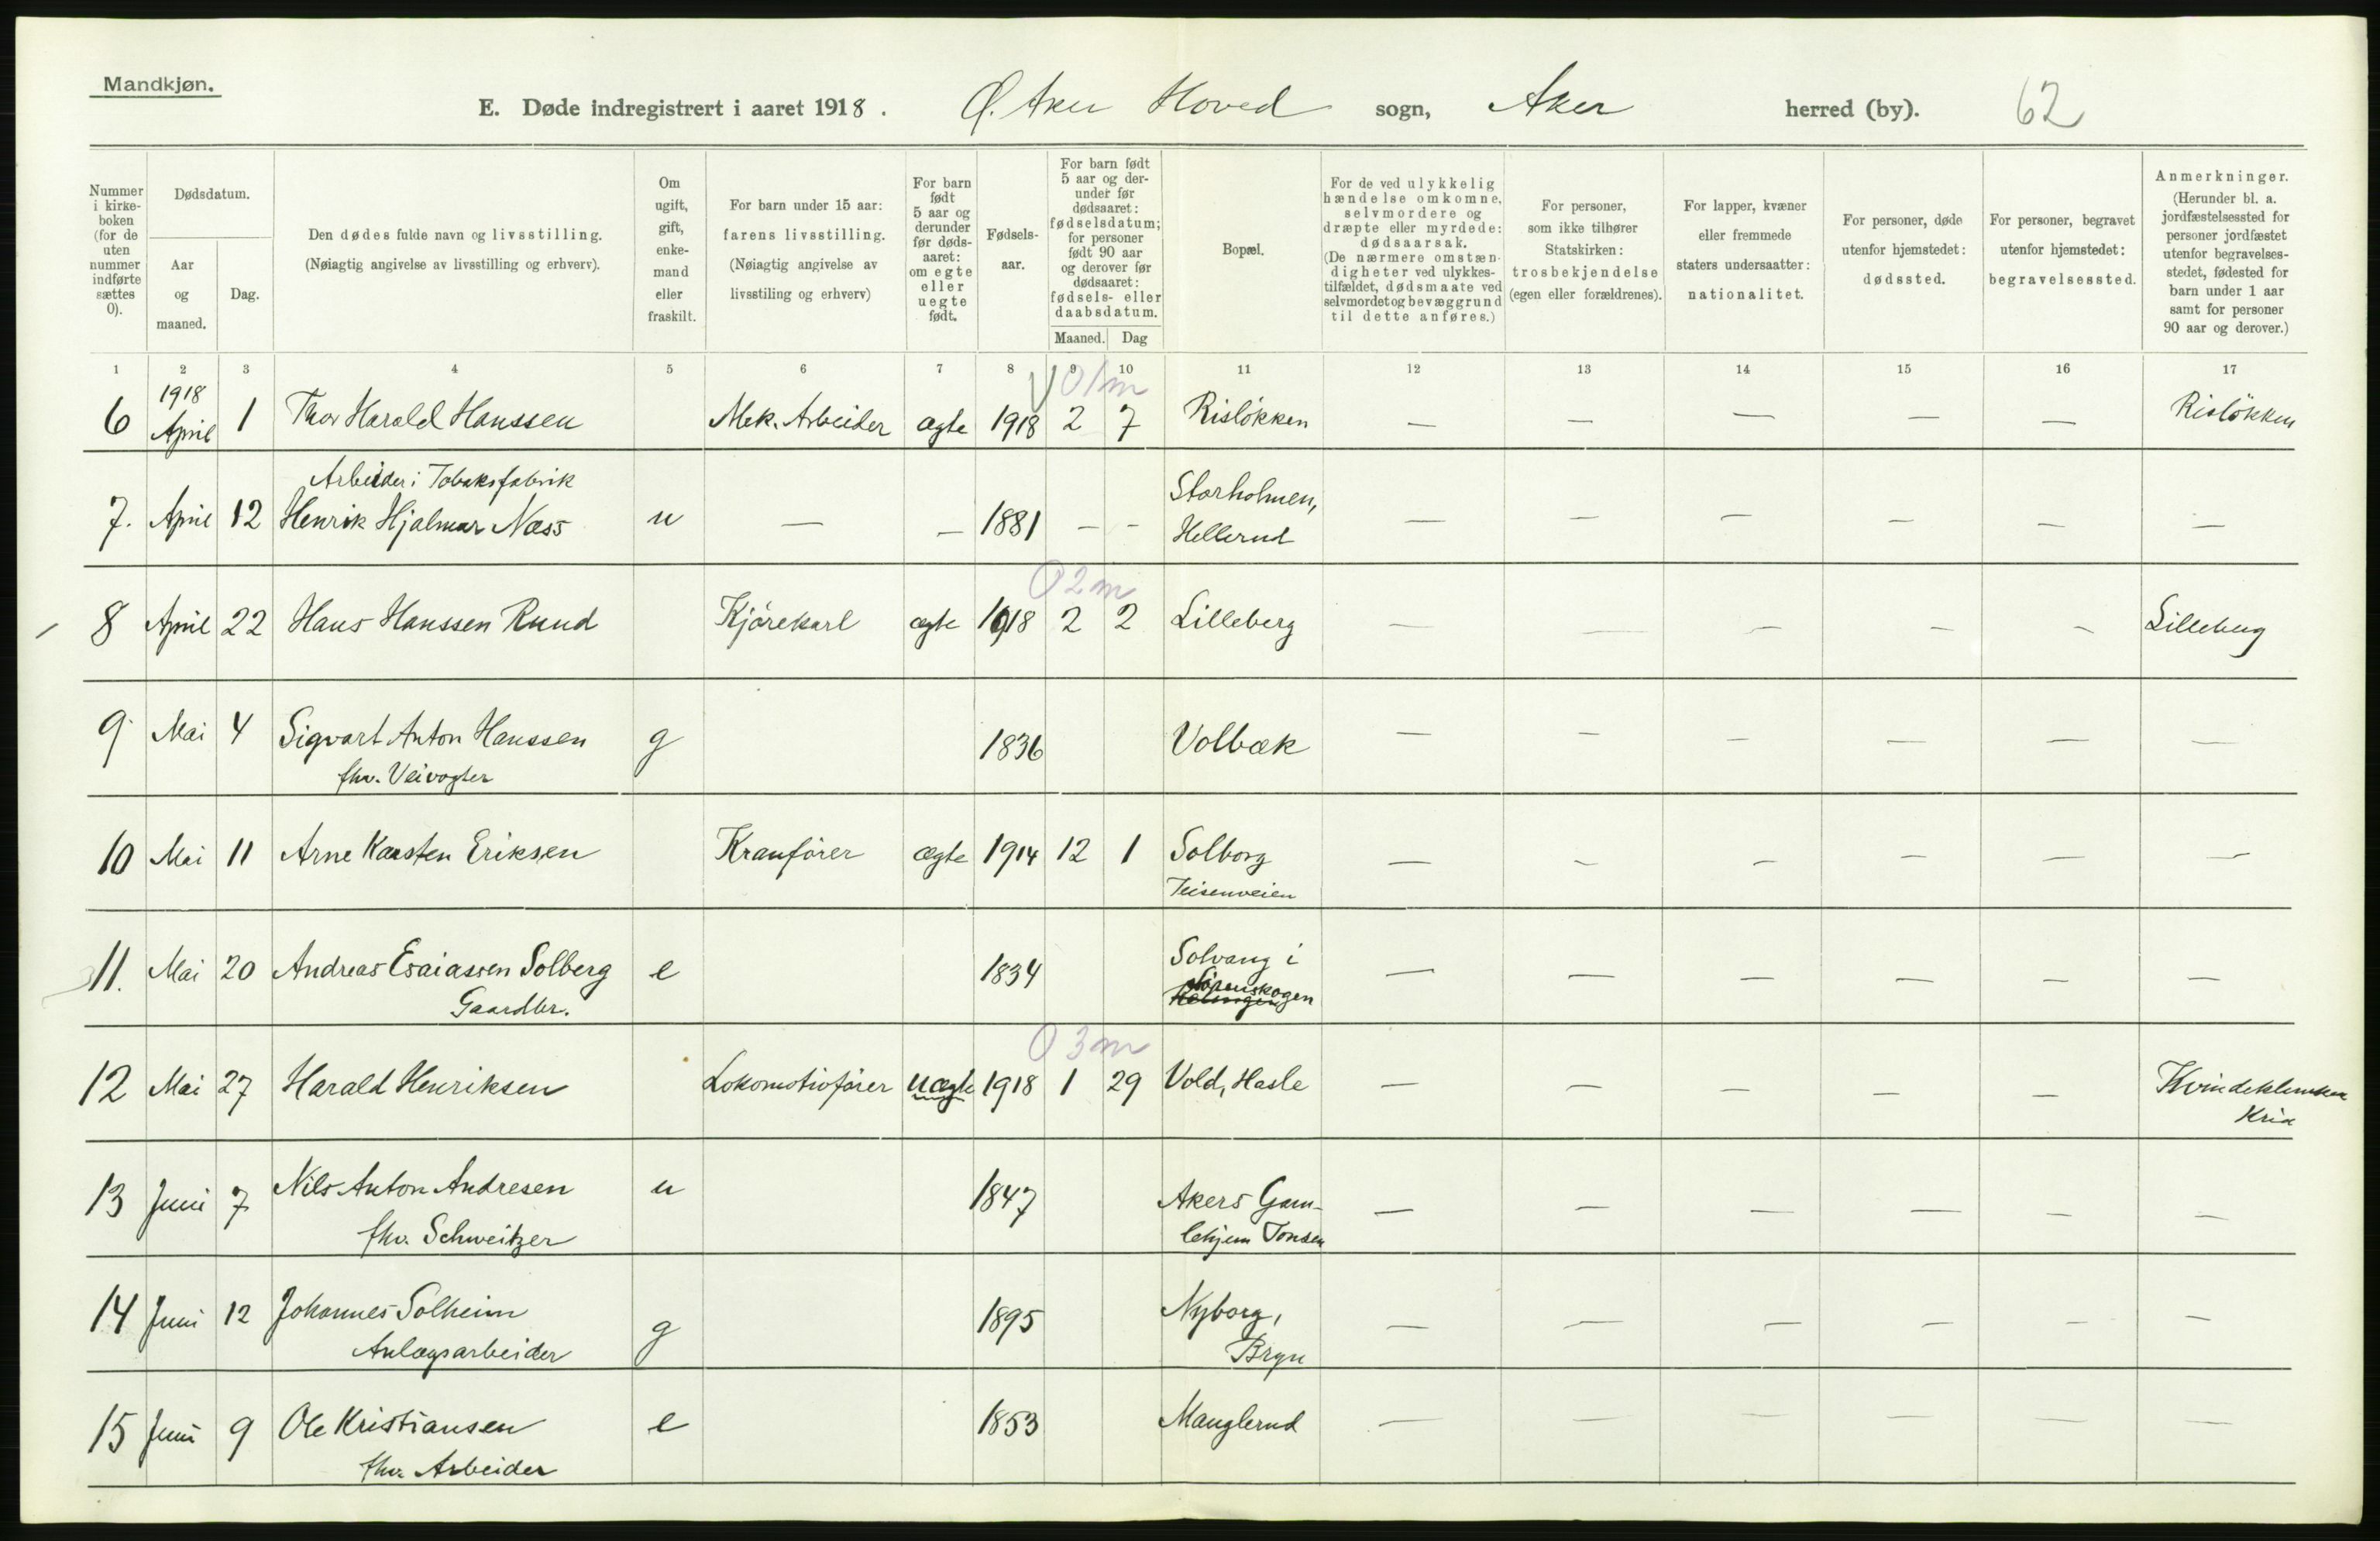 Mandkjøn.
E. Døde indregistrert i aaret 1918. Ø. Aker Hoved sogn, Aker herred (by). 62
Nummer i kirkeboken (for de uten nummer indførte sættes 0).
Dødsdatum.
Aar og maaned.
Dag.
Den dødes fulde navn og livsstilling.
(Nøiagtig angivelse av livsstilling og erhverv).
Om ugift, gift, enkemand eller fraskilt.
For barn under 15 aar: farens livsstilling.
(Nøiagtig angivelse av livsstiling og erhverv)
For barn født 5 aar og derunder før dødsaaret: om egte eller uegte født.
Fødselsaar.
For barn født 5 aar og derunder før dødsaaret: fødselsdatum; for personer født 90 aar og derover før dødsaaret: fødsels- eller daabsdatum.
Maaned. Dag
Bopæl.
For de ved ulykkelig hændelse omkomne, selvmordere og dræpte eller myrdede: dødsaarsak.
(De nærmere omstændigheter ved ulykkestilfældet, dødsmaate ved selvmordet og bevæggrund til dette anføres.)
For personer, som ikke tilhører Statskirken: trosbekjendelse (egen eller forældrenes).
For lapper, kvæner eller fremmede staters undersaatter: nationalitet.
For personer, døde utenfor hjemstedet: dødssted.
For personer, begravet utenfor hjemstedet: begravelsessted.
Anmerkninger.
(Herunder bl. a. jordfæstelsessted for personer jordfæstet utenfor begravelsesstedet, fødested for barn under 1 aar samt for personer 90 aar og derover.)
1 2 3 4 5 6 7 8 9 10 11 12 13 14 15 16 17
1918 0 1m
6 April 1 Thor Harald Hanssen Mek. Arbeider ægte 1918 2 7 Risløkken — — — — — Risløkken
Arbeider i Tobaksfabrik
7. April 12 Henrik Hjalmar Næss u — — 1881 — - Storholmen, Hellerud — — — — — —
0 2m
8 April 22 Hans Hanssen Ruud Kjørekarl ægte 1918 2 2 Lilleberg — — — — — Lilleberg
9 Mai 4 Sigvart Anton Hanssen g 1836 Volbæk — — — — — —
fhv. Veivogter
10 Mai 11 Arne Karsten Eriksen Kranfører ægte 1914 12 1 Solborg — — — — — —
Teisenveien
11. Mai 20 Andreas Esaiassen Solberg e 1834 Solvang i — — — — — —
Gaardbr. Lørenskogen
0 3m
12 Mai 27 Harald Henriksen Lokomotivfører uægte 1918 1 29 Vold, Hasle — — — — — Kvindeklinikken
Kria
13 Juni 7 Nils Anton Andresen u 1847 Akers Gam- — — — — — —
fhv. Schweitzer lehjem Tonsen
14 Juni 12 Johannes Solheim g 1895 Nyborg, — — — — — —
Anlægsarbeider Bryn
15 Juni 9 Ole Kristiansen e 1853 Manglerud — — — — — —
fhv. Arbeider